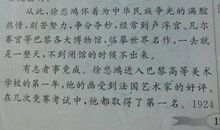 从此,徐悲鸿怀着为中华民族争光的满腔
热情,刻苦努力,争分夺秒,经常到卢浮宫、凡尔
赛宫等巴黎各大博物馆,临摹世界名作,一去就
是一整天,不到闭馆的时候不出来。
有志者事竟成。徐悲鸿进入巴黎高等美术
学校的第一年,他的画受到法国艺术家的好评。
在几次竞赛考试中,他都取得了第一名。1924